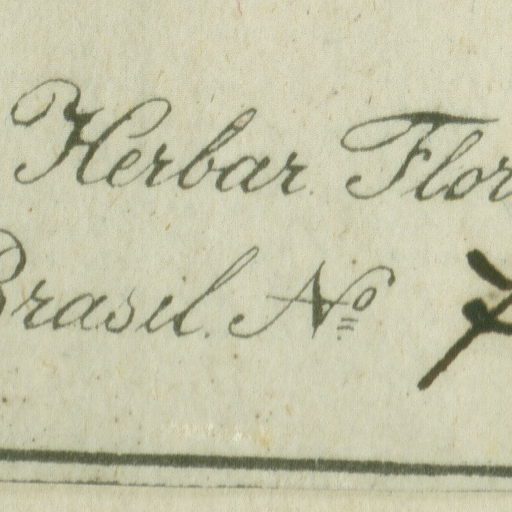 Herbar. Flor
Brasil. Nº 7